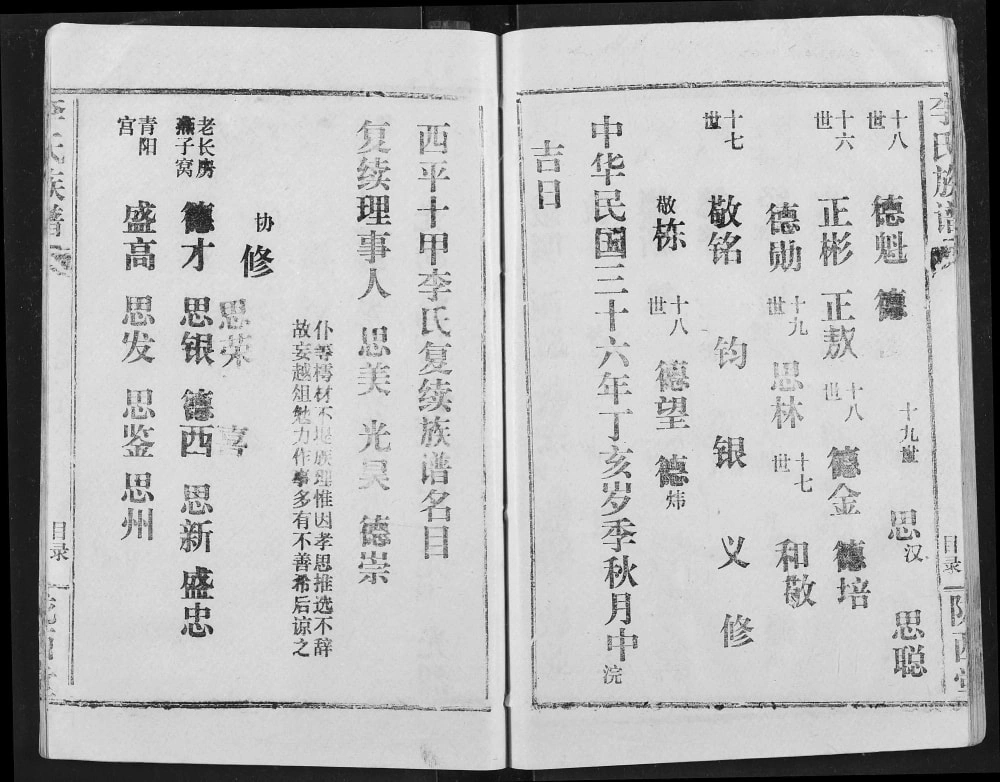 李氏族谱
目录
陇西堂
十八世 德魁 德 十九世 思汉 思聪
十六世 正彬 正敖 十八世 德金 德培
德勋 十九世 思林 十七世 和敬
十七世 敬铭 钧 银 义 修
敬栋 十八世 德望 德炜
中华民国三十六年丁亥岁季秋月中浣
吉日
西平十甲李氏复续族谱名目
复续理事人 思美 光昊 德崇
仆等樗材不堪族理惟因孝思推选不辞
故妄越俎勉力作事多有不善希后谅之
协修 思荣 喜
老长房
燕子窝 德才 思银 德西 思新 盛忠
青阳
宫 盛高 思发 思鉴 思州
李氏族谱
目录